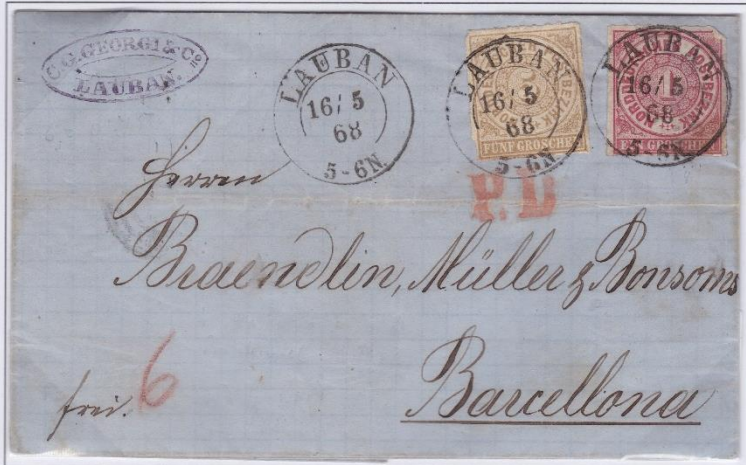 C. G. GEORGI & Co
LAUBAN.
LAUBAN
16/5
68
5-6N.
LAUBAN
16/5
68
5-6N.
NORDD
BEZIRK
5
FÜNF GROSCHE
LAUBAN
16/5
68
5-6N.
NORDD
BEZIRK
1
EIN GROSCHE
P.D
Herren
Braendlin, Müller & Bonsoms
Barcellona
frei. 6